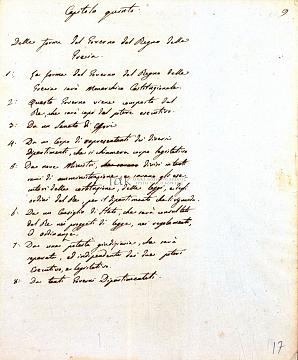 Capitolo quinto.
9
Delle forme del Governo del Regno della
Grecia
1: La forma del Governo del Regno della
Grecia sarà Monarchico Costituzionale.
2: Questo Governo viene composto dal
Re, che sarà capo del potere esecutivo.
3: Da un Senato di
4: Da un Corpo di representanti de diversi
Dipartimenti, che si chiamerà corpo legislativo
5: Da nove Ministri, divisi in tanti
rami di amministrazione, e saranno gli esecutori
della costituzione, delle leggi, e degli
ordini del Re per il dipartimento che
6: Da un Consiglio di Stato, che sarà consultato
dal Re nei progetti di legge, nei regolamenti,
o ordinanze.
7: Da una potestà giudiziaria, che sarà
separata, ed independente dai due poteri
esecutivo, e legislativo.
8: Da tanti Governi Dipartimentali.
17